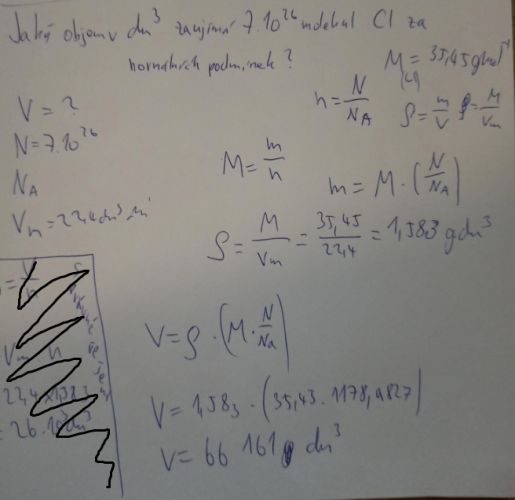 Jaký objem v dm³ zaujímá 7.10²⁶ molekul Cl za
normálních podmínek?
M(Cl) = 35,45 g mol⁻¹
n = N/NA
ρ = m/V ρ = M/Vm
V = ?
N = 7.10²⁶
NA
Vm = 22,4 dm³
M = m/n
m = M · (N/NA)
ρ = M/Vm = 35,45/22,4 = 1,583 g dm³
V = ρ · (M · N/NA)
V = 1,583 · (35,43 . 1178,9827)
V = 66 161 dm³